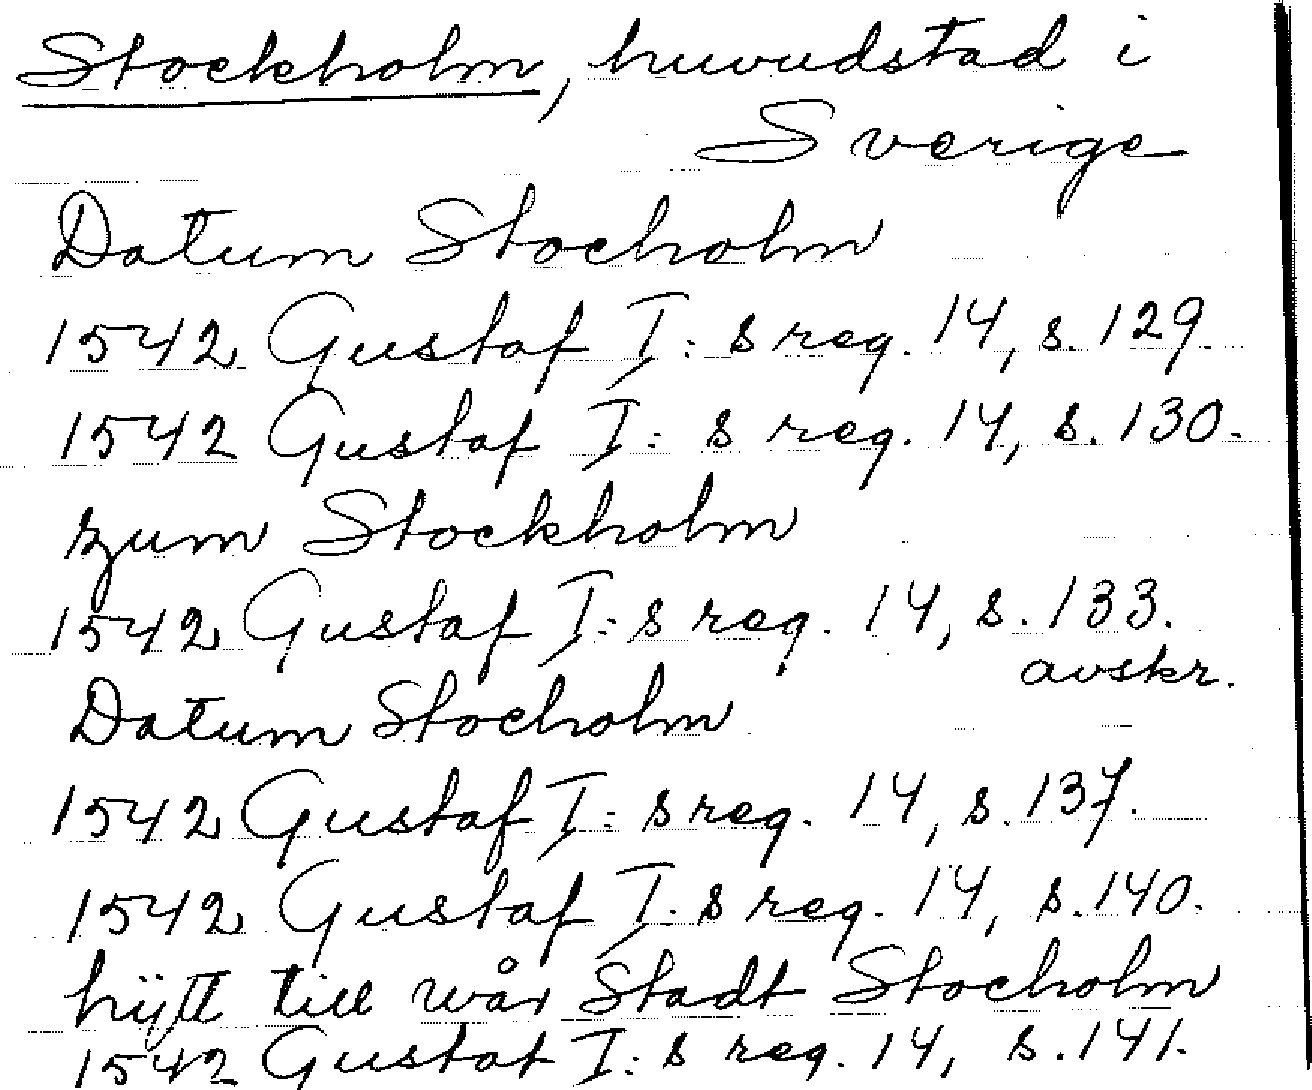 Stockholm, huvudstad i
Sverige
Datum Stocholm
1542 Gustaf I: s reg. 14, s. 129.
1542 Gustaf I: s reg. 14, s. 130.
zum Stockholm
1542 Gustaf I: s reg. 14, s. 133.
avskr.
Datum Stocholm
1542 Gustaf I: s reg. 14, s. 137.
1542 Gustaf I: s reg. 14, s. 140.
hijtt till wår Stadt Stocholm
1542 Gustaf I: s reg. 14, s. 141.